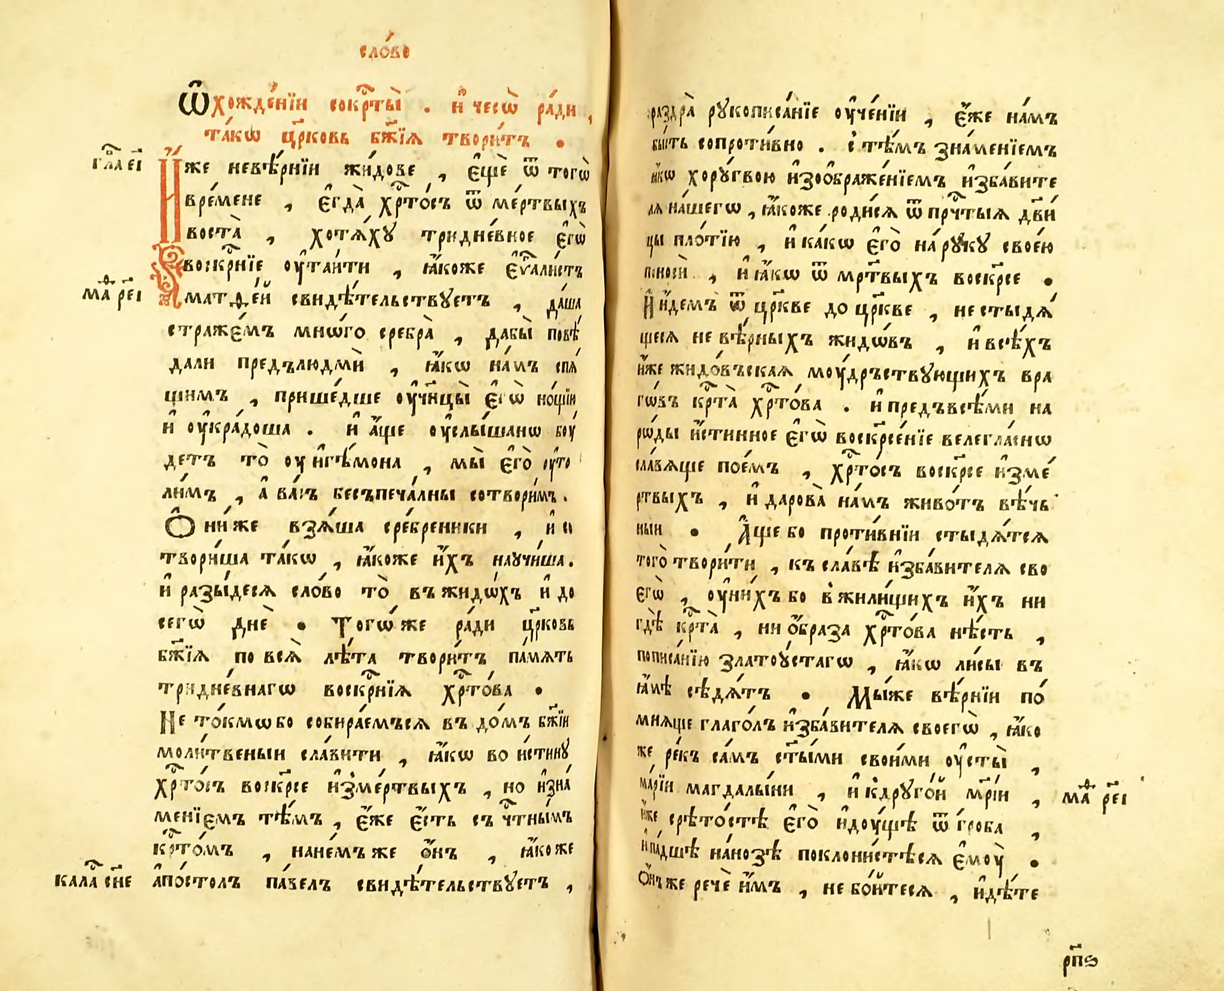 сло́во
Ѿхожде́нїи сокрⷭ҇ты̀ . и҆ чесѡ̀ ра́ди ,
та́кѡ цр҃ковь бж҃їѧ твори́тъ .
гла єі
И҆́же неве́рнїи жи́дове , є҆щѐ ѿ тогѡ̀
вре́мене , є҆гда̀ хрⷭ҇то́съ ѿ ме́ртвыхъ
воста̀ , хотѧ́ху тридне́вное є҆гѡ̀
воскрⷭ҇нїе ѹ҆таи́ти , ꙗ҆́коже є҆ѵⷢ҇али́стъ
ма рєі
матѳе́й свидѣ́тельствꙋетъ , да́ша
стражє́мъ мно́ѡго сребра̀ , дабы̀ повѣ́
дали предълюдмѝ , ꙗ҆́кѡ на́мъ спѧ́
щимъ , прише́дше ѹ҆чн҃цы̀ є҆гѡ̀ но́щїи
и҆ ѹ҆кра́доша . и҆ а҆́ще ѹ҆слы́шанѡ боу́
детъ то̀ ѹ҆ и҆ге́мона , мы̀ є҆го̀ ѹ҆то
ли́мъ , а҆ ва́съ бесъпеча́лны сотвори́мъ .
Ѻ҆ни́же взѧ́ша сре́бреники , и҆ со
твори́ша та́кѡ , ꙗ҆́коже и҆́хъ научи́ша .
и҆ разы́десѧ сло́во то̀ въжидѡ́хъ и҆ до
сегѡ̀ днѐ . Тогѡ́же ра́ди цр҃ковь
бж҃їѧ повсѧ̀ лѣ́та твори́тъ па́мѧть
тридне́внагѡ воскрⷭ҇нїѧ хрⷭ҇то́ва .
Не то́кмѡбо собира́емъсѧ въдо́мъ бж҃їи
моли́твеныи сла́вити , ꙗ҆́кѡ во и҆́стинꙋ
хрⷭ҇то́съ воскрⷭ҇се и҆зме́ртвыхъ , но и҆зна́
менїемъ тѣ́мъ , є҆́же є҆́сть съ чⷭ҇тнымъ
крⷭ҇то́мъ , нанемъже ѻ҆́нъ , ꙗ҆́коже
кала сн҃е
а҆по́столъ па́велъ свидѣ́тельствꙋетъ ,
раздра̀ рꙋкописа́нїе ѹ҆че́нїи , є҆́же на́мъ
бы́ть сопроти́вно . с тѣ́мъ зна́менїемъ
ꙗ҆́кѡ хорꙋ́гвою и҆зѻбраже́нїемъ и҆зба́вите
лѧ на́шегѡ , ꙗ҆́коже роди́сѧ ѿ прⷱ҇тыѧ дв҃и
цы пло́тїю , и҆ ка́кѡ є҆го̀ на рꙋ́кꙋ свое́ю
поноси̂ , и҆ ꙗ҆́кѡ ѿ мр҃твыхъ воскрⷭ҇се .
И҆ и҆́демъ ѿ цр҃кве до цр҃кве , не стыдѧ́
щесѧ неве́рныхъ жидѡ́въ , и҆ всѣ́хъ
и҆́же жидо́въскаѧ моу́дръствꙋющихъ вра
гѡ́въ крⷭ҇та̀ хрⷭ҇то́ва . и҆ предъвсѣ́ми на
рѡ́ды и҆́стинное є҆гѡ̀ воскрⷭ҇се́нїе велегла́снѡ
сла́вѧще пое́мъ , хрⷭ҇то́съ воскрⷭ҇се и҆зме́
ртвыхъ , и҆ дарова̀ на́мъ живо́тъ вѣ́чь
ныи . А҆́ще бо проти́внїи стыдѧ́тсѧ
того̀ твори́ти , къ сла́вѣ и҆зба́вителѧ сво
єгѡ̀ , ѹ҆ни́хъ бо вжили́щихъ и҆́хъ ни
гдѣ́ крⷭ҇та̀ , ни ѻ҆́браза хрⷭ҇то́ва нѣ́сть ,
пописа́нїю златоꙋ́стагѡ , ꙗ҆́кѡ ли́сы въ
ꙗ҆́мѣ сѣдѧ́тъ . Мы́же вѣ́рнїи по́
мнѧще глаго́лъ и҆зба́вителѧ своегѡ̀ , ꙗ҆́ко
же ре́къ са́мъ ст҃ы́ми свои́ми ѹ҆сты̀ ,
мр҃їи магдалы́ни , и҆ кдрꙋго́й мр҃їи ,
ма рєі
и҆́же срѣ́тостѣ є҆го̀ и҆доу́щѣ ѿ гро́ба ,
и҆ па́дшѣ на́нозѣ поклони́стѣсѧ є҆моу̀ .
Ѻ҆́нъже речѐ и҆́мъ , не бо́йтесѧ , и҆ди́те
рп҃ѕ